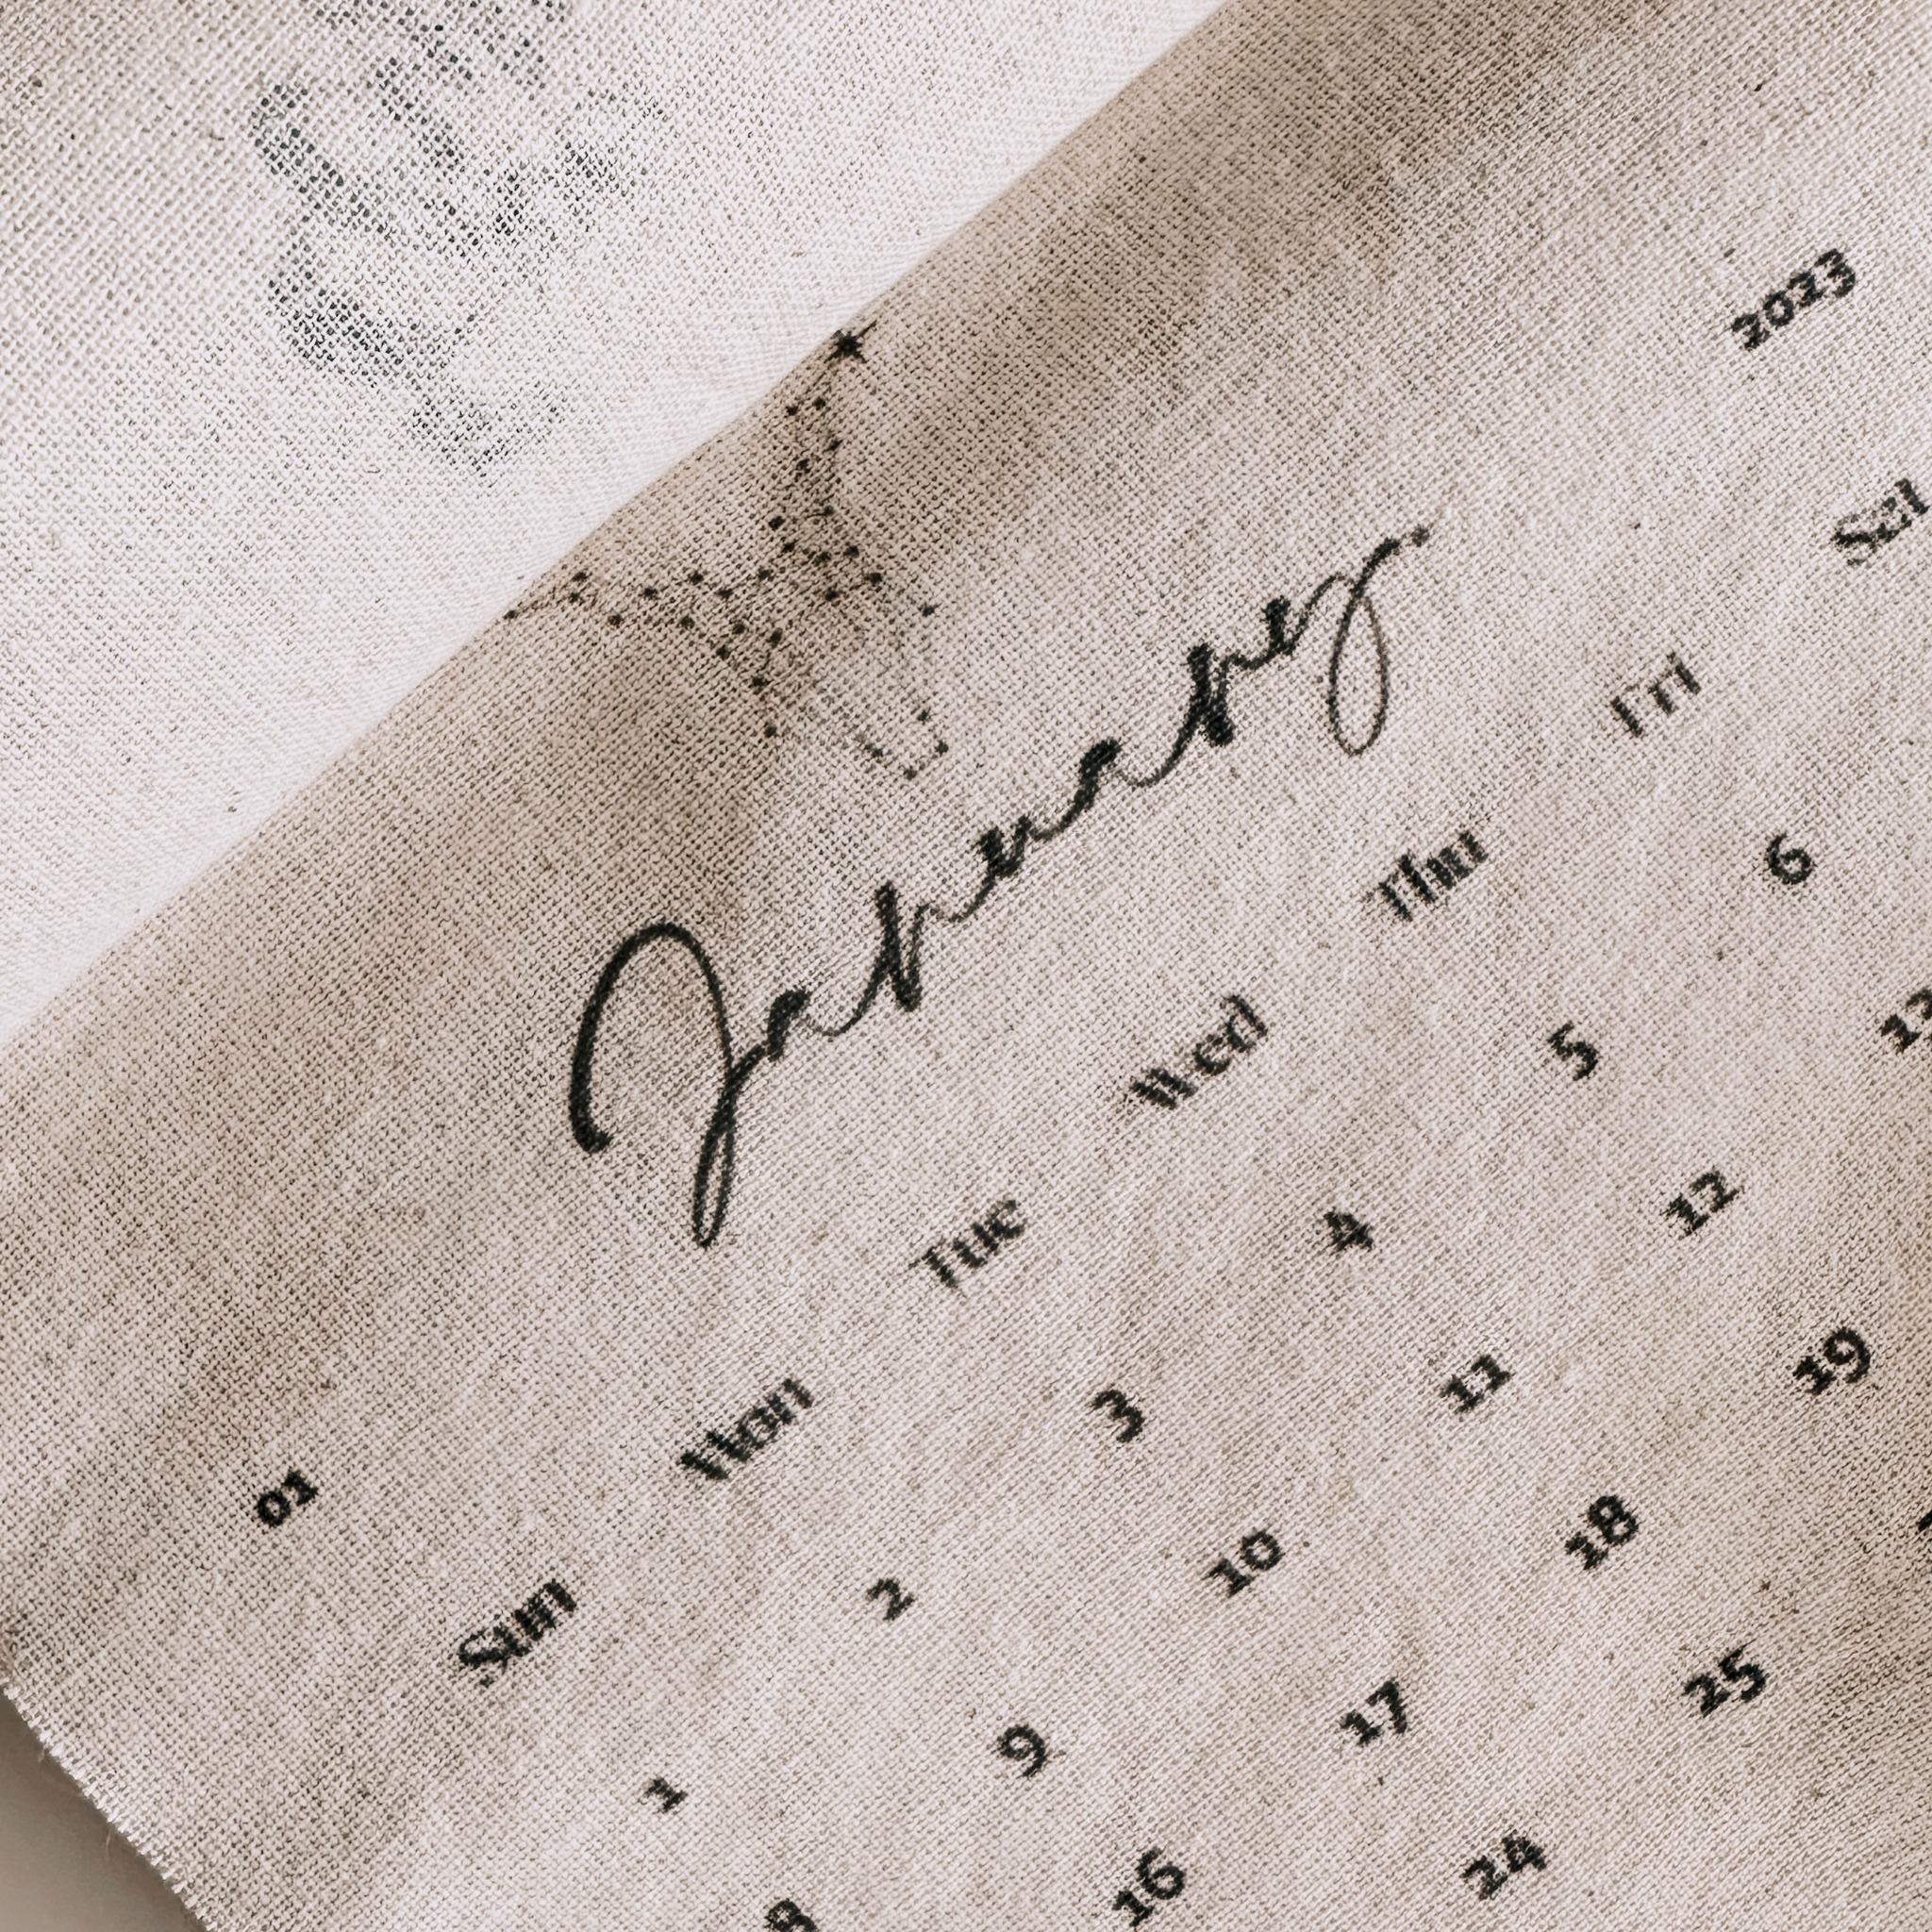 01 2023
January.
Sun Mon Tue Wed Thu Fri Sat
1 2 3 4 5 6
8 9 10 11 12 13
16 17 18 19
24 25